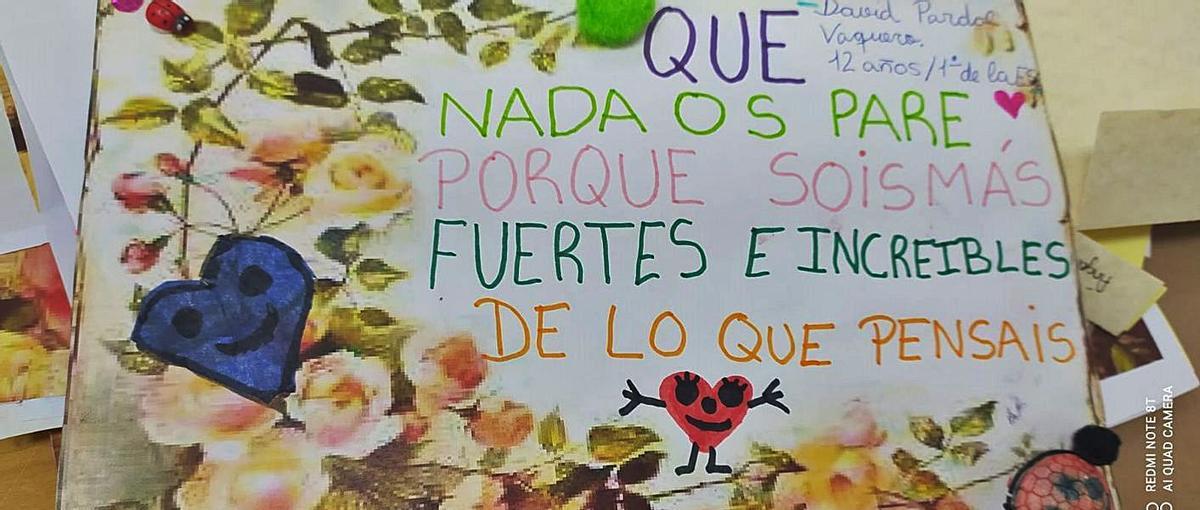 QUE
David Pardo
Vaquero.
12 años/1º de la ES
NADA OS PARE
PORQUE SOIS MÁS
FUERTES E INCREIBLES
DE LO QUE PENSAIS
REDMI NOTE 8T
AI QUAD CAMERA